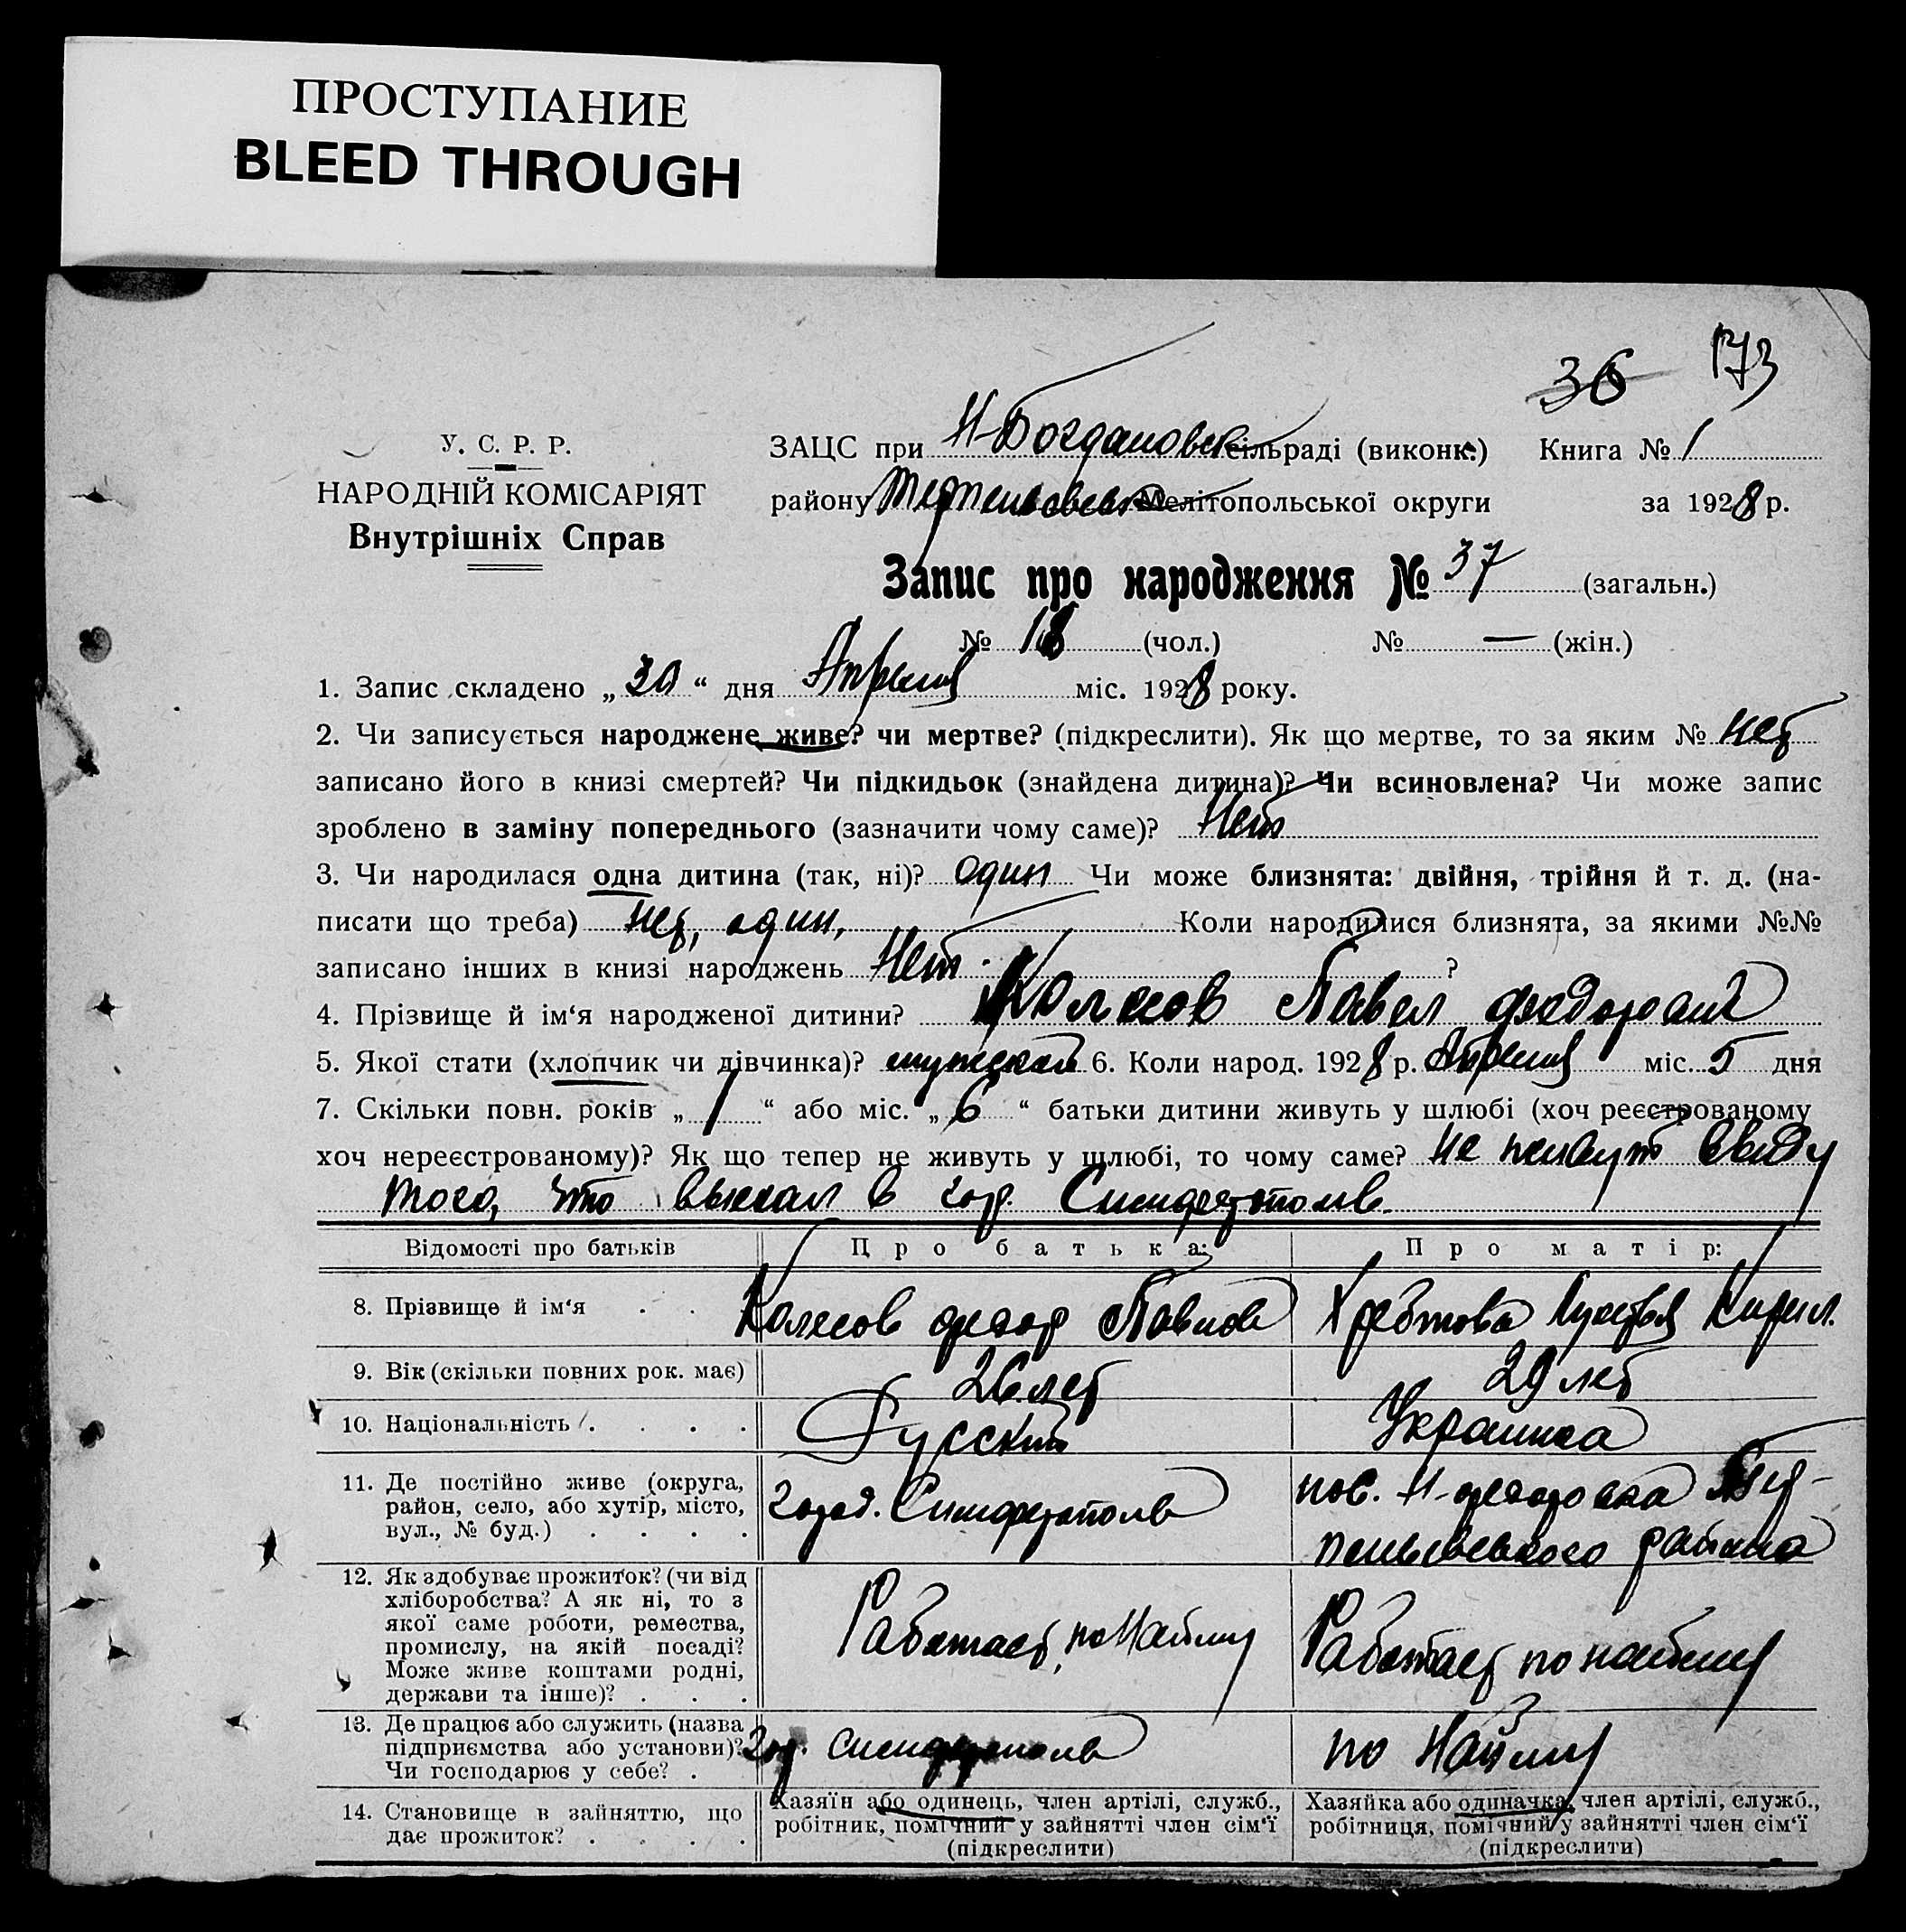 ПРОСТУПАНИЕ
BLEED THROUGH
36 173
У. С. Р. Р.
НАРОДНІЙ КОМІСАРІЯТ
Внутрішніх Справ
ЗАЦС при Н-Богдановск сільраді (виконк.) Книга № 1
району Терпеньевск Мелітопольської округи за 1928 р.
Запис про народження № 37 (загальн.)
№ 18 (чол.) № — (жін.)
1. Запис складено „30“ дня Апреля міс. 1928 року.
2. Чи записується народжене живе? чи мертве? (підкреслити). Як що мертве, то за яким № нет
записано його в книзі смертей? Чи підкидьок (знайдена дитина)? Чи всиновлена? Чи може запис
зроблено в заміну попереднього (зазначити чому саме)? Нет
3. Чи народилася одна дитина (так, ні)? один Чи може близнята: двійня, трійня й т. д. (на-
писати що треба) нет, один, Коли народилися близнята, за якими №№
записано інших в книзі народжень Нет ?
4. Прізвище й ім‘я народженої дитини? Колесов Павел Федорович
5. Якої стати (хлопчик чи дівчинка)? мужской 6. Коли народ. 1928 р. Апреля міс. 5 дня
7. Скільки повн. років „1“ або міс. „6“ батьки дитини живуть у шлюбі (хоч реєстрованому
хоч нереєстрованому)? Як що тепер не живуть у шлюбі, то чому саме? Не живут ввиду
того, что выехал в гор. Симферополь.
Відомості про батьків Про батька: Про матір:
8. Прізвище й ім‘я . . Колесов Федор Павлов Хребтова Кирил.
9. Вік (скільки повних рок. має) 26 лет 29 лет
10. Національність . . . . Русский Украинка
11. Де постійно живе (округа,
район, село, або хутір, місто,
вул., № буд.) . . . .
город. Симферополь
пос. Н-Федоровка Тер-
пеньевского района
12. Як здобуває прожиток? (чи від
хліборобства? А як ні, то з
якої саме роботи, ремества,
промислу, на якій посаді?
Може живе коштами родні,
держави та інше)? . . .
Работает по Найму
Работает по найму
13. Де працює або служить (назва
підприємства або установи)?
Чи господарює у себе? .
гор. Симферополь
по Найму
14. Становище в зайняттю, що
дає прожиток? . . . .
Хазяїн або одинець, член артілі, служб.,
робітник, помічний у зайнятті член сім‘ї
(підкреслити)
Хазяйка або одиначка, член артілі, служб.,
робітниця, помічний у зайнятті член сім‘ї
(підкреслити)